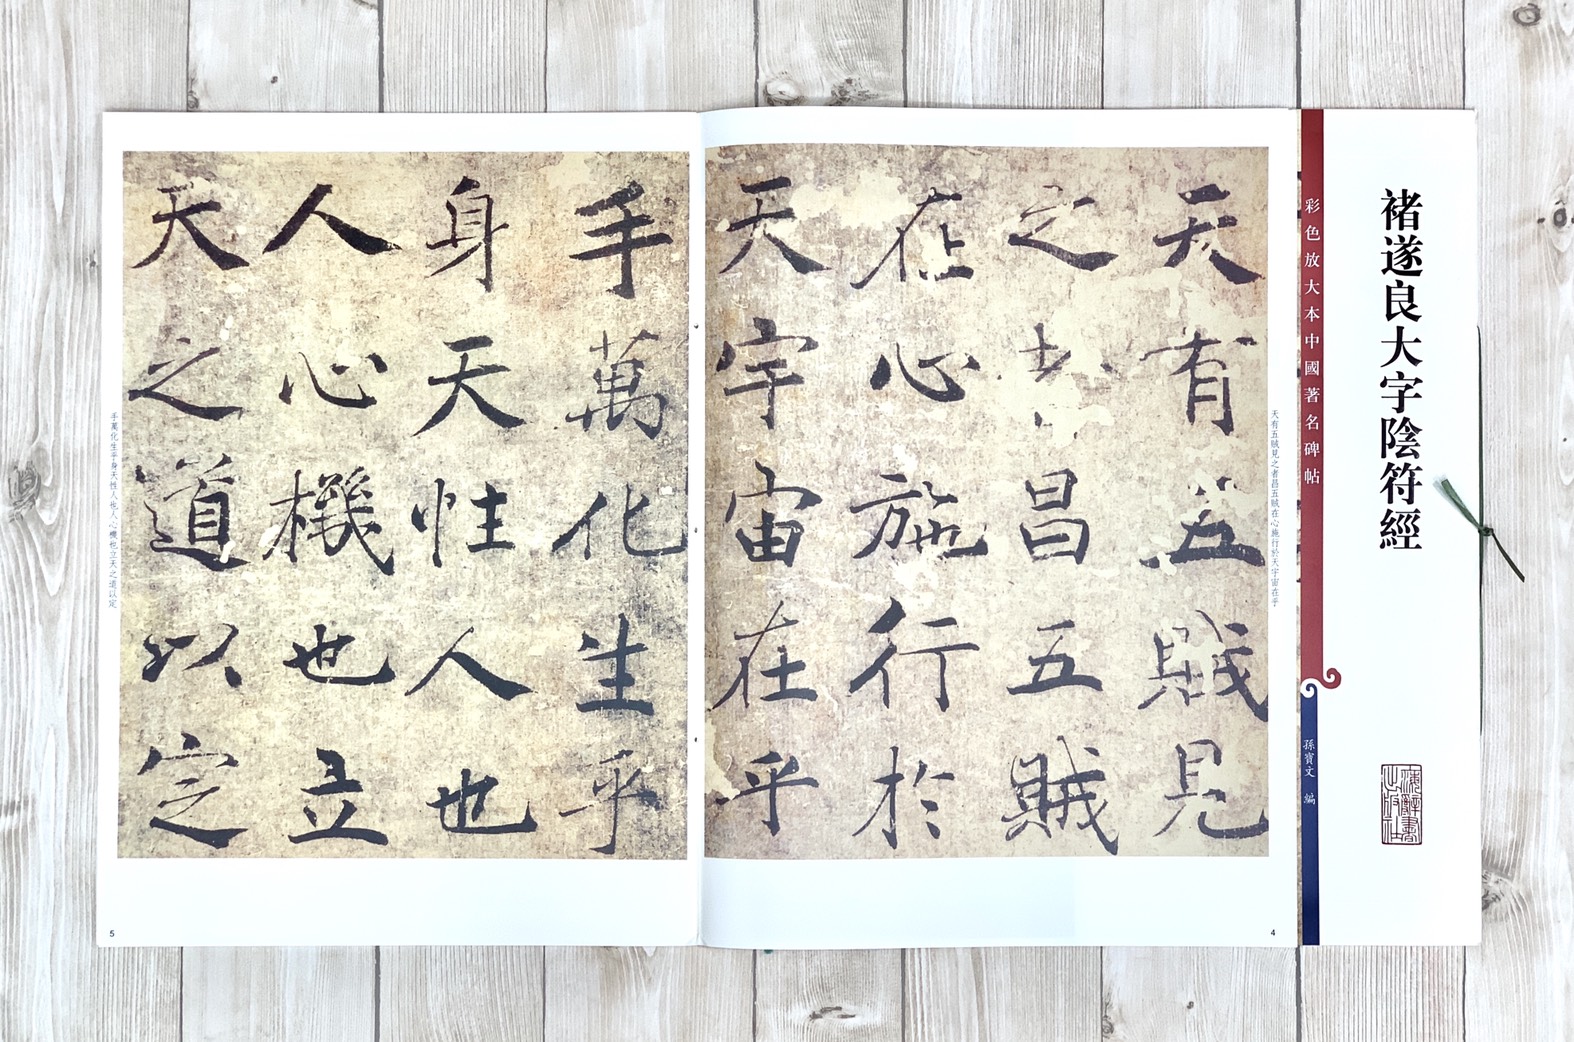 褚遂良大字陰符經
彩色放大本中國著名碑帖
孫寶文 編
海辭書出版社
天有五賊見之者昌五賊在心施行於天宇宙在乎
天有五賊見
之者昌五賊
在心施行於
天宇宙在乎
4
手萬化生乎
身天性人也
人心機也立
天之道以定
手萬化生乎身天性人也人心機也立天之道以定
5